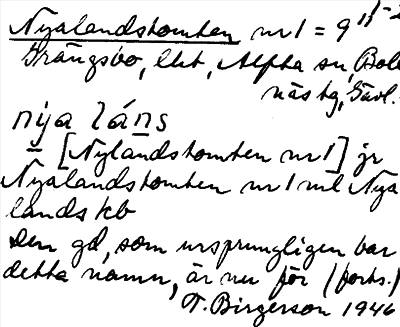 Nyalandstomten nr 1 = 9 11 1-2
Grängsbo, lht, Alfta sn, Boll
näs tg, Gävl.
nija láns
[Nylandstomten nr 1] jr
Nyalandstomten nr 1 ml Nya
lands kb
Den gd, som ursprungligen bar
detta namn, är nu för (forts.)
T. Birgerson 1946